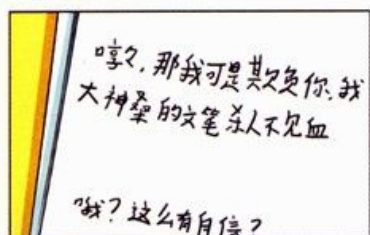 哼々，那我可是欺负你，我
大神桑的文笔杀人不见血
哦？这么有自信？